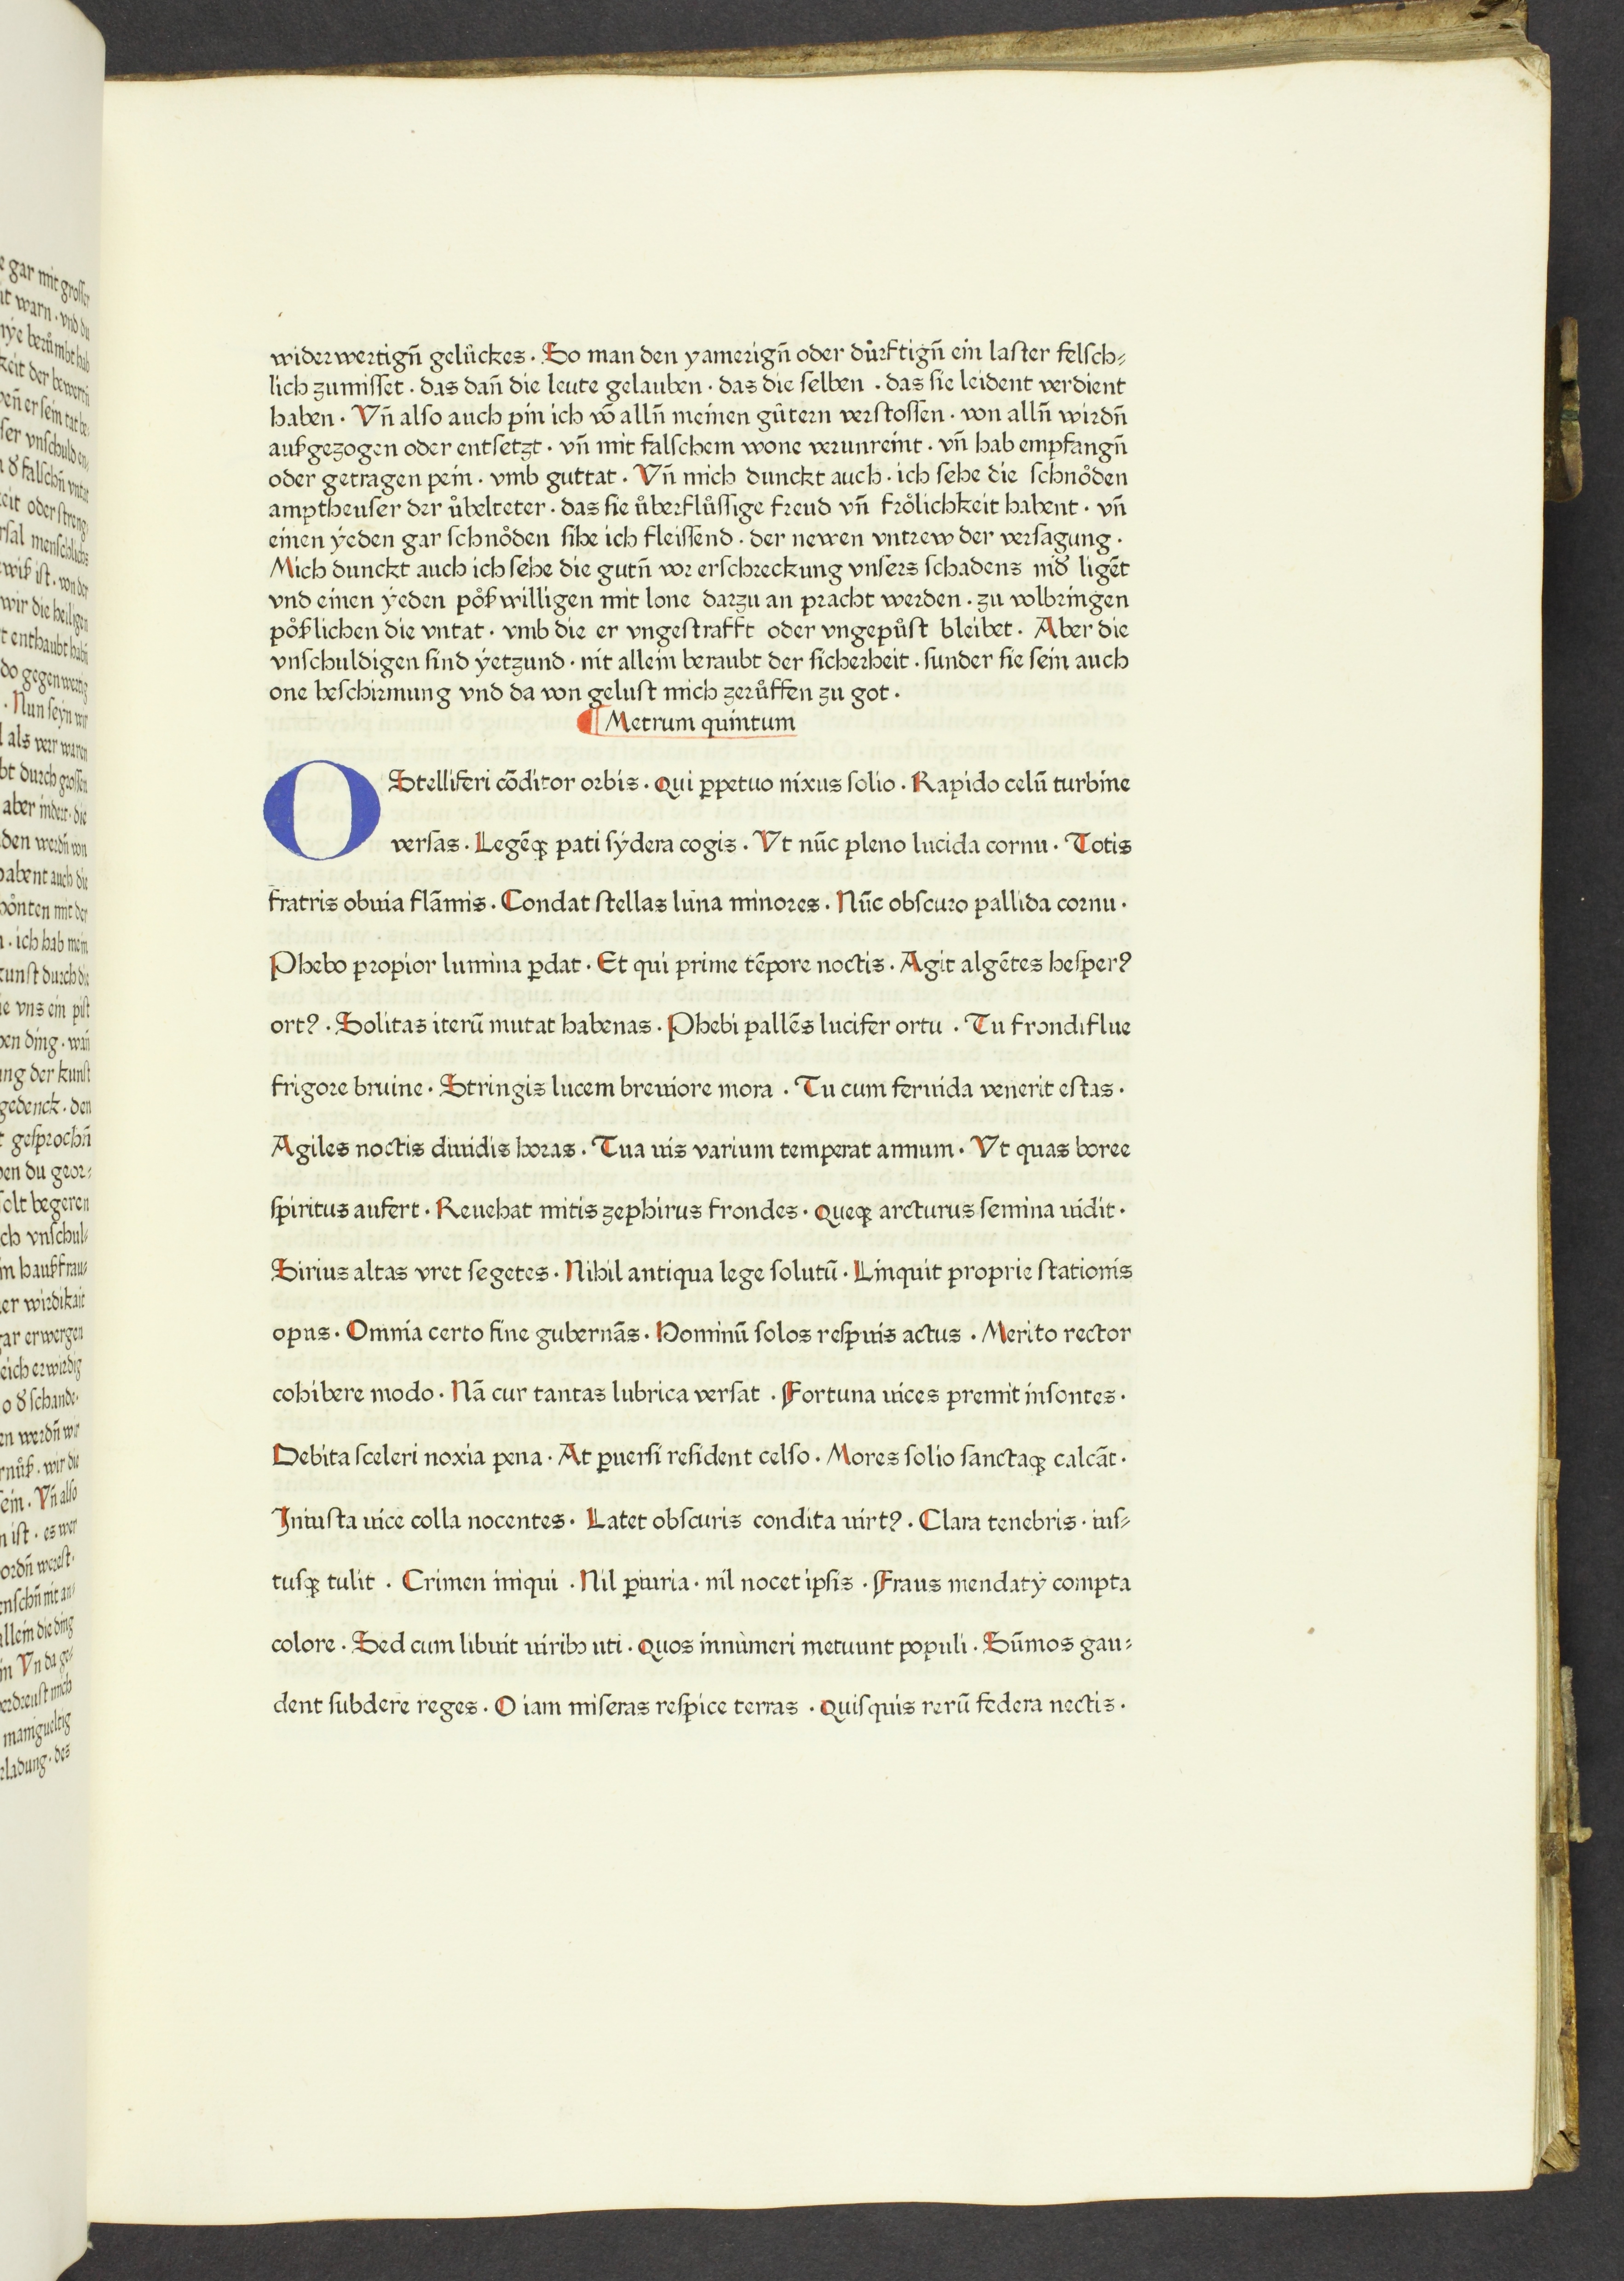 widerwertigñ gelückes · So man den yamerigñ oder důrftigñ ein laster felsch⸗
lich zumisset · das dañ die leute gelauben · das die selben · das sie leident verdient
haben · Vñ also auch pin ich võ allñ meinen gůtern verstossen · von allñ wirdñ
außgezogen oder entsetzt · vñ mit falschem wone verunreint · vñ hab empfangñ
oder getragen pein · vmb guttat · Vñ mich dunckt auch · ich sehe die schnoͤden
amptheuser der ůbelteter · das sie ůberflůssige freud vñ froͤlichkeit habent · vñ
einen ÿeden gar schnoͤden sihe ich fleissend · der newen vntrew der versagung ·
Mich dunckt auch ich sehe die gutñ vor erschreckung vnsers schadens nið ligẽt
vnd einen ÿeden poͤßwilligen mit lone darzu an pracht werden · zu volbringen
poͤßlichen die vntat · vmb die er vngestrafft oder vngepůst bleibet · Aber die
vnschuldigen sind ÿetzund · nit allein beraubt der sicherheit · sunder sie sein auch
one beschirmung vnd da von gelust mich zerůffen zu got ·
¶ Metrum quintum
O Stelliferi cõditor orbis · Qui ꝑpetuo nixus solio · Rapido celũ turbine
versas · Legẽqꝫ pati sÿdera cogis · Vt nũc pleno lucida cornu · Totis
fratris obuia flãmis · Condat stellas luna minores · Nũc obscuro pallida cornu ·
Phebo propior lumina ꝑdat · Et qui prime tẽpore noctis · Agit algẽtes hesper⸗
ort⸗ · Solitas iterũ mutat habenas · Phebi pallẽs lucifer ortu · Tu frondiflue
frigore brume · Stringis lucem breuiore mora · Tu cum feruida venerit estas ·
Agiles noctis diuidis horas · Tua uis varium temperat annum · Vt quas boree
spiritus aufert · Reuehat mitis zephirus frondes · Queqꝫ arcturus semina uidit ·
Sirius altas vret segetes · Nihil antiqua lege solutũ · Linquit proprie stationis
opus · Omnia certo fine gubernãs · Hominũ solos respuis actus · Merito rector
cohibere modo · Nã cur tantas lubrica versat · Fortuna uices premit insontes ·
Debita sceleri noxia pena · At ꝑuersi resident celso · Mores solio sanctaqꝫ calcãt ·
Iniusta uice colla nocentes · Latet obscuris condita uirt⸗ · Clara tenebris · ius⸗
tusqꝫ tulit · Crimen iniqui · Nil ꝑiuria · nil nocet ipsis · Fraus mendatÿ compta
colore · Sed cum libuit uiribꝰ uti · Quos innumeri metuunt populi · Sũmos gau⸗
dent subdere reges · O iam miseras respice terras · Quisquis rerũ federa nectis ·